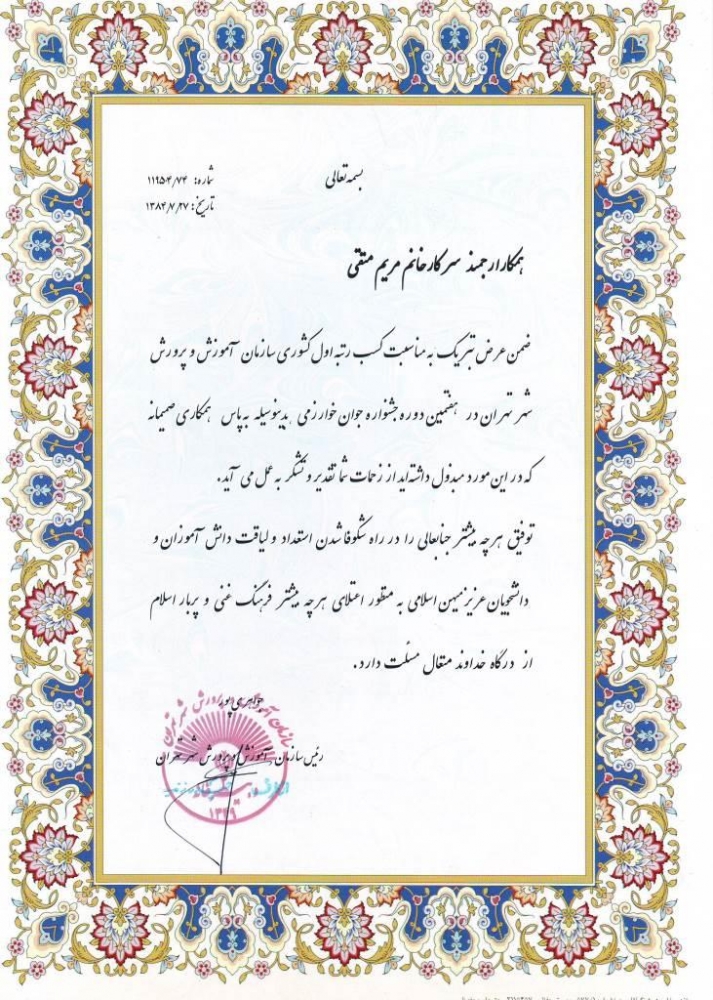 بسمه تعالی
شماره: ۱۱۹۵۴/۷۴
تاریخ: ۱۳۸۴/۷/۲۷
همکار ارجمند سرکار خانم مریم متقی
ضمن عرض تبریک به مناسبت کسب رتبه اول کشوری سازمان آموزش و پرورش
شهر تهران در هفتمین دوره جشنواره جوان خوارزمی بدینوسیله به پاس همکاری صمیمانه
که در این مورد مبذول داشته‌اید از زحمات شما تقدیر و تشکر به عمل می آید.
توفیق هر چه بیشتر جنابعالی را در راه شکوفا شدن استعداد و لیاقت دانش آموزان و
دانشجویان عزیز میهن اسلامی به منظور اعتلای هر چه بیشتر فرهنگ غنی و پربار اسلام
از درگاه خداوند متعال مسئلت دارد.
جواهری پور
رئیس سازمان آموزش و پرورش شهر تهران